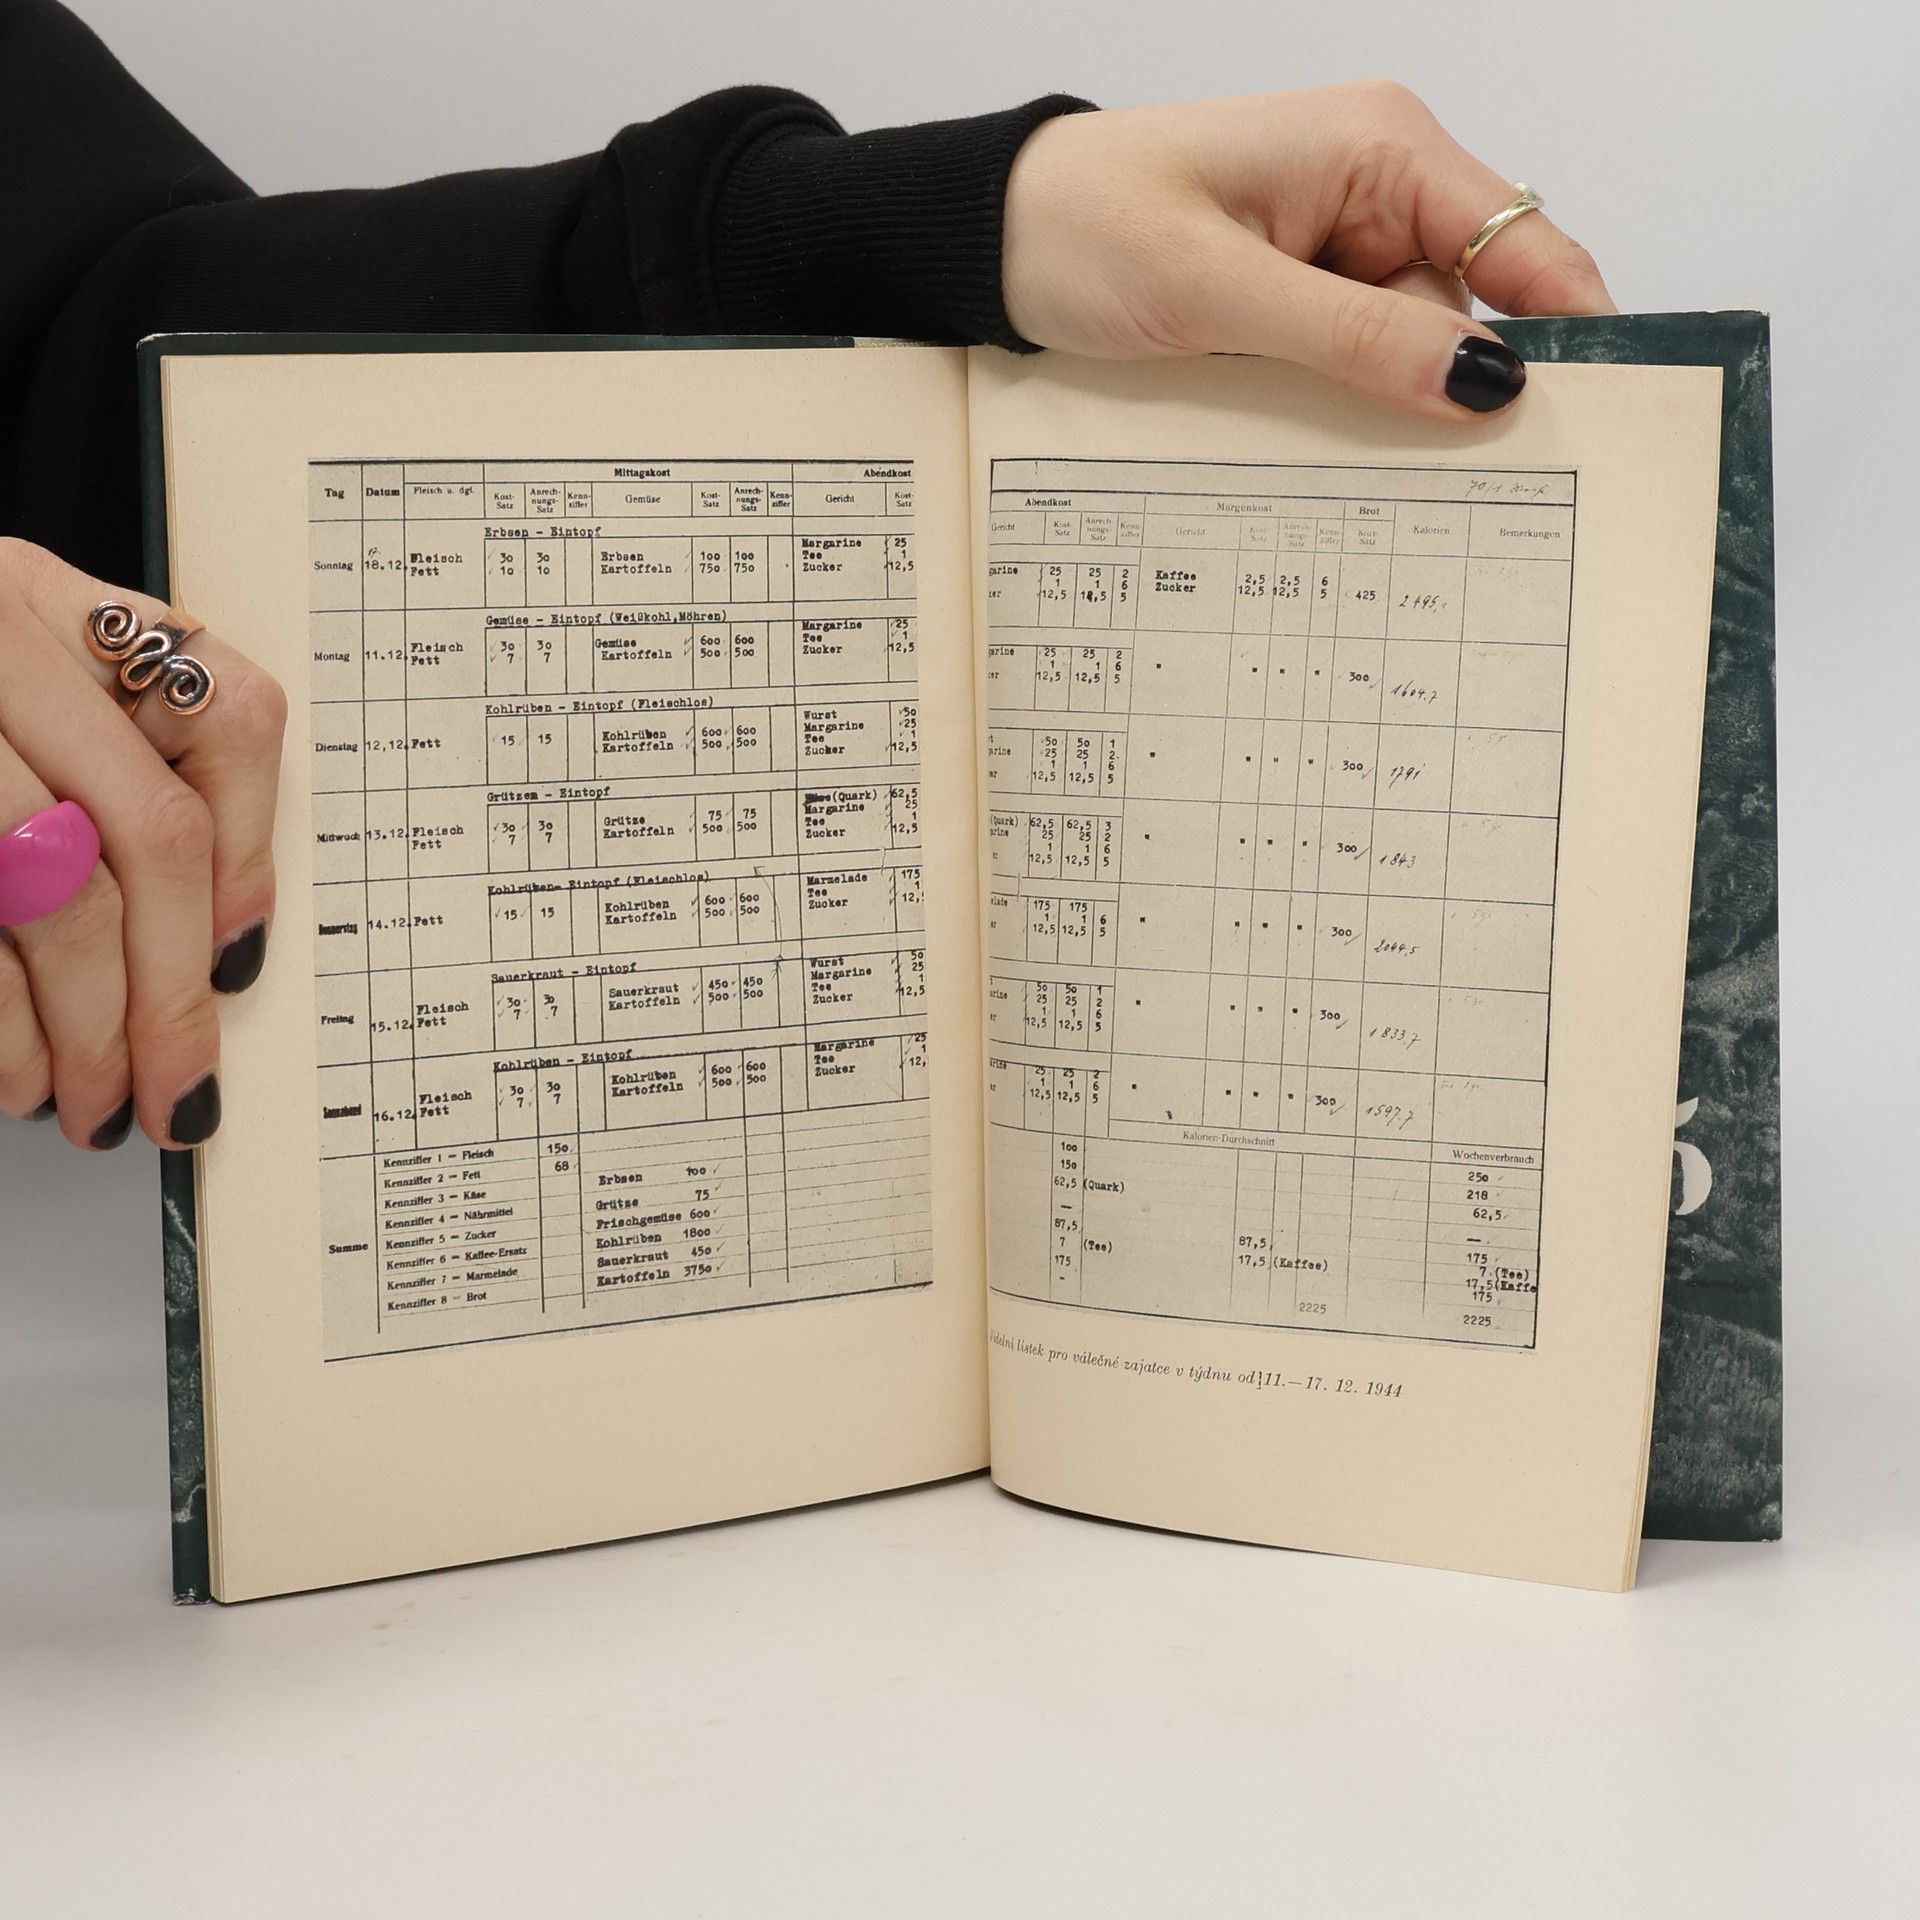 Mittagskost Abendkost
Tag Datum Fleisch u. dgl. Kost-Satz Anrechnungs-Satz Kennziffer Gemüse Kost-Satz Anrechnungs-Satz Kennziffer Gericht Kost-Satz
Erbsen - Eintopf
Sonntag 17. 18.12. Fleisch 30 30 Erbsen 100 100 Margarine 25
Fett 10 10 Kartoffeln 750 750 Tee 1
Zucker 12,5
Gemüse - Eintopf (Weißkohl,Möhren)
Montag 11.12. Fleisch 30 30 Gemüse 600 600 Margarine 25
Fett 7 7 Kartoffeln 500 500 Tee 1
Zucker 12,5
Kohlrüben - Eintopf (Fleischlos)
Dienstag 12.12. Fett 15 15 Kohlrüben 600 600 Wurst 50
Kartoffeln 500 500 Margarine 25
Tee 1
Zucker 12,5
Grützen - Eintopf
Mittwoch 13.12. Fleisch 30 30 Grütze 75 75 (Quark) 62,5
Fett 7 7 Kartoffeln 500 500 Margarine 25
Tee 1
Zucker 12,5
Kohlrüben- Eintopf (Fleischlos)
Donnerstag 14.12. Fett 15 15 Kohlrüben 600 600 Marmelade 175
Kartoffeln 500 500 Tee 1
Zucker 12,
Sauerkraut - Eintopf
Freitag 15.12. Fleisch 30 30 Sauerkraut 450 450 Wurst 50
Fett 7 7 Kartoffeln 500 500 Margarine 25
Tee 1
Zucker 12,5
Kohlrüben - Eintopf
Sonnabend 16.12. Fleisch 30 30 Kohlrüben 600 600 Margarine 25
Fett 7 7 Kartoffeln 500 500 Tee 1
Zucker 12,
Summe
Kennziffer 1 — Fleisch 150
Kennziffer 2 — Fett 68 Erbsen 100
Kennziffer 3 — Käse Grütze 75
Kennziffer 4 — Nährmittel Frischgemüse 600
Kennziffer 5 — Zucker Kohlrüben 1800
Kennziffer 6 — Kaffee-Ersatz Sauerkraut 450
Kennziffer 7 — Marmelade Kartoffeln 3750
Kennziffer 8 — Brot
Abendkost Morgenkost Brot Kalorien Bemerkungen
Gericht Kost-Satz Anrechnungs-Satz Kennziffer Gericht Kost-Satz Anrechnungs-Satz Kennziffer Kost-Satz
garine 25 25 2 Kaffee 2,5 2,5 6
1 1 6 Zucker 12,5 12,5 5 425
ker 12,5 12,5 5 2495,1
garine 25 25 2
1 1 6 " " " " 300
ker 12,5 12,5 5 1604.7
t 50 50 1
garine 25 25 2
1 1 6 " " " " 300
er 12,5 12,5 5 1791
(Quark) 62,5 62,5 3
arine 25 25 2
1 1 6 " " " " 300
12,5 12,5 5 1843
elade 175 175
1 1 6 " " " " 300
er 12,5 12,5 5 2044,5
t 50 50 1
arine 25 25 2
1 1 6 " " " " 300
er 12,5 12,5 5 1833.7
arine 25 25 2
1 1 6 " " " " 300
er 12,5 12,5 5 1597.7
Kalorien-Durchschnitt Wochenverbrauch
100 250
150 218
62,5 (Quark) 62,5
— —
87,5 87,5 175
7 (Tee) 17,5 (Kaffee) 7 (Tee)
17,5(Kaffe
175 175
- 2225 2225
Jídelní lístek pro válečné zajatce v týdnu od 11.—17. 12. 1944